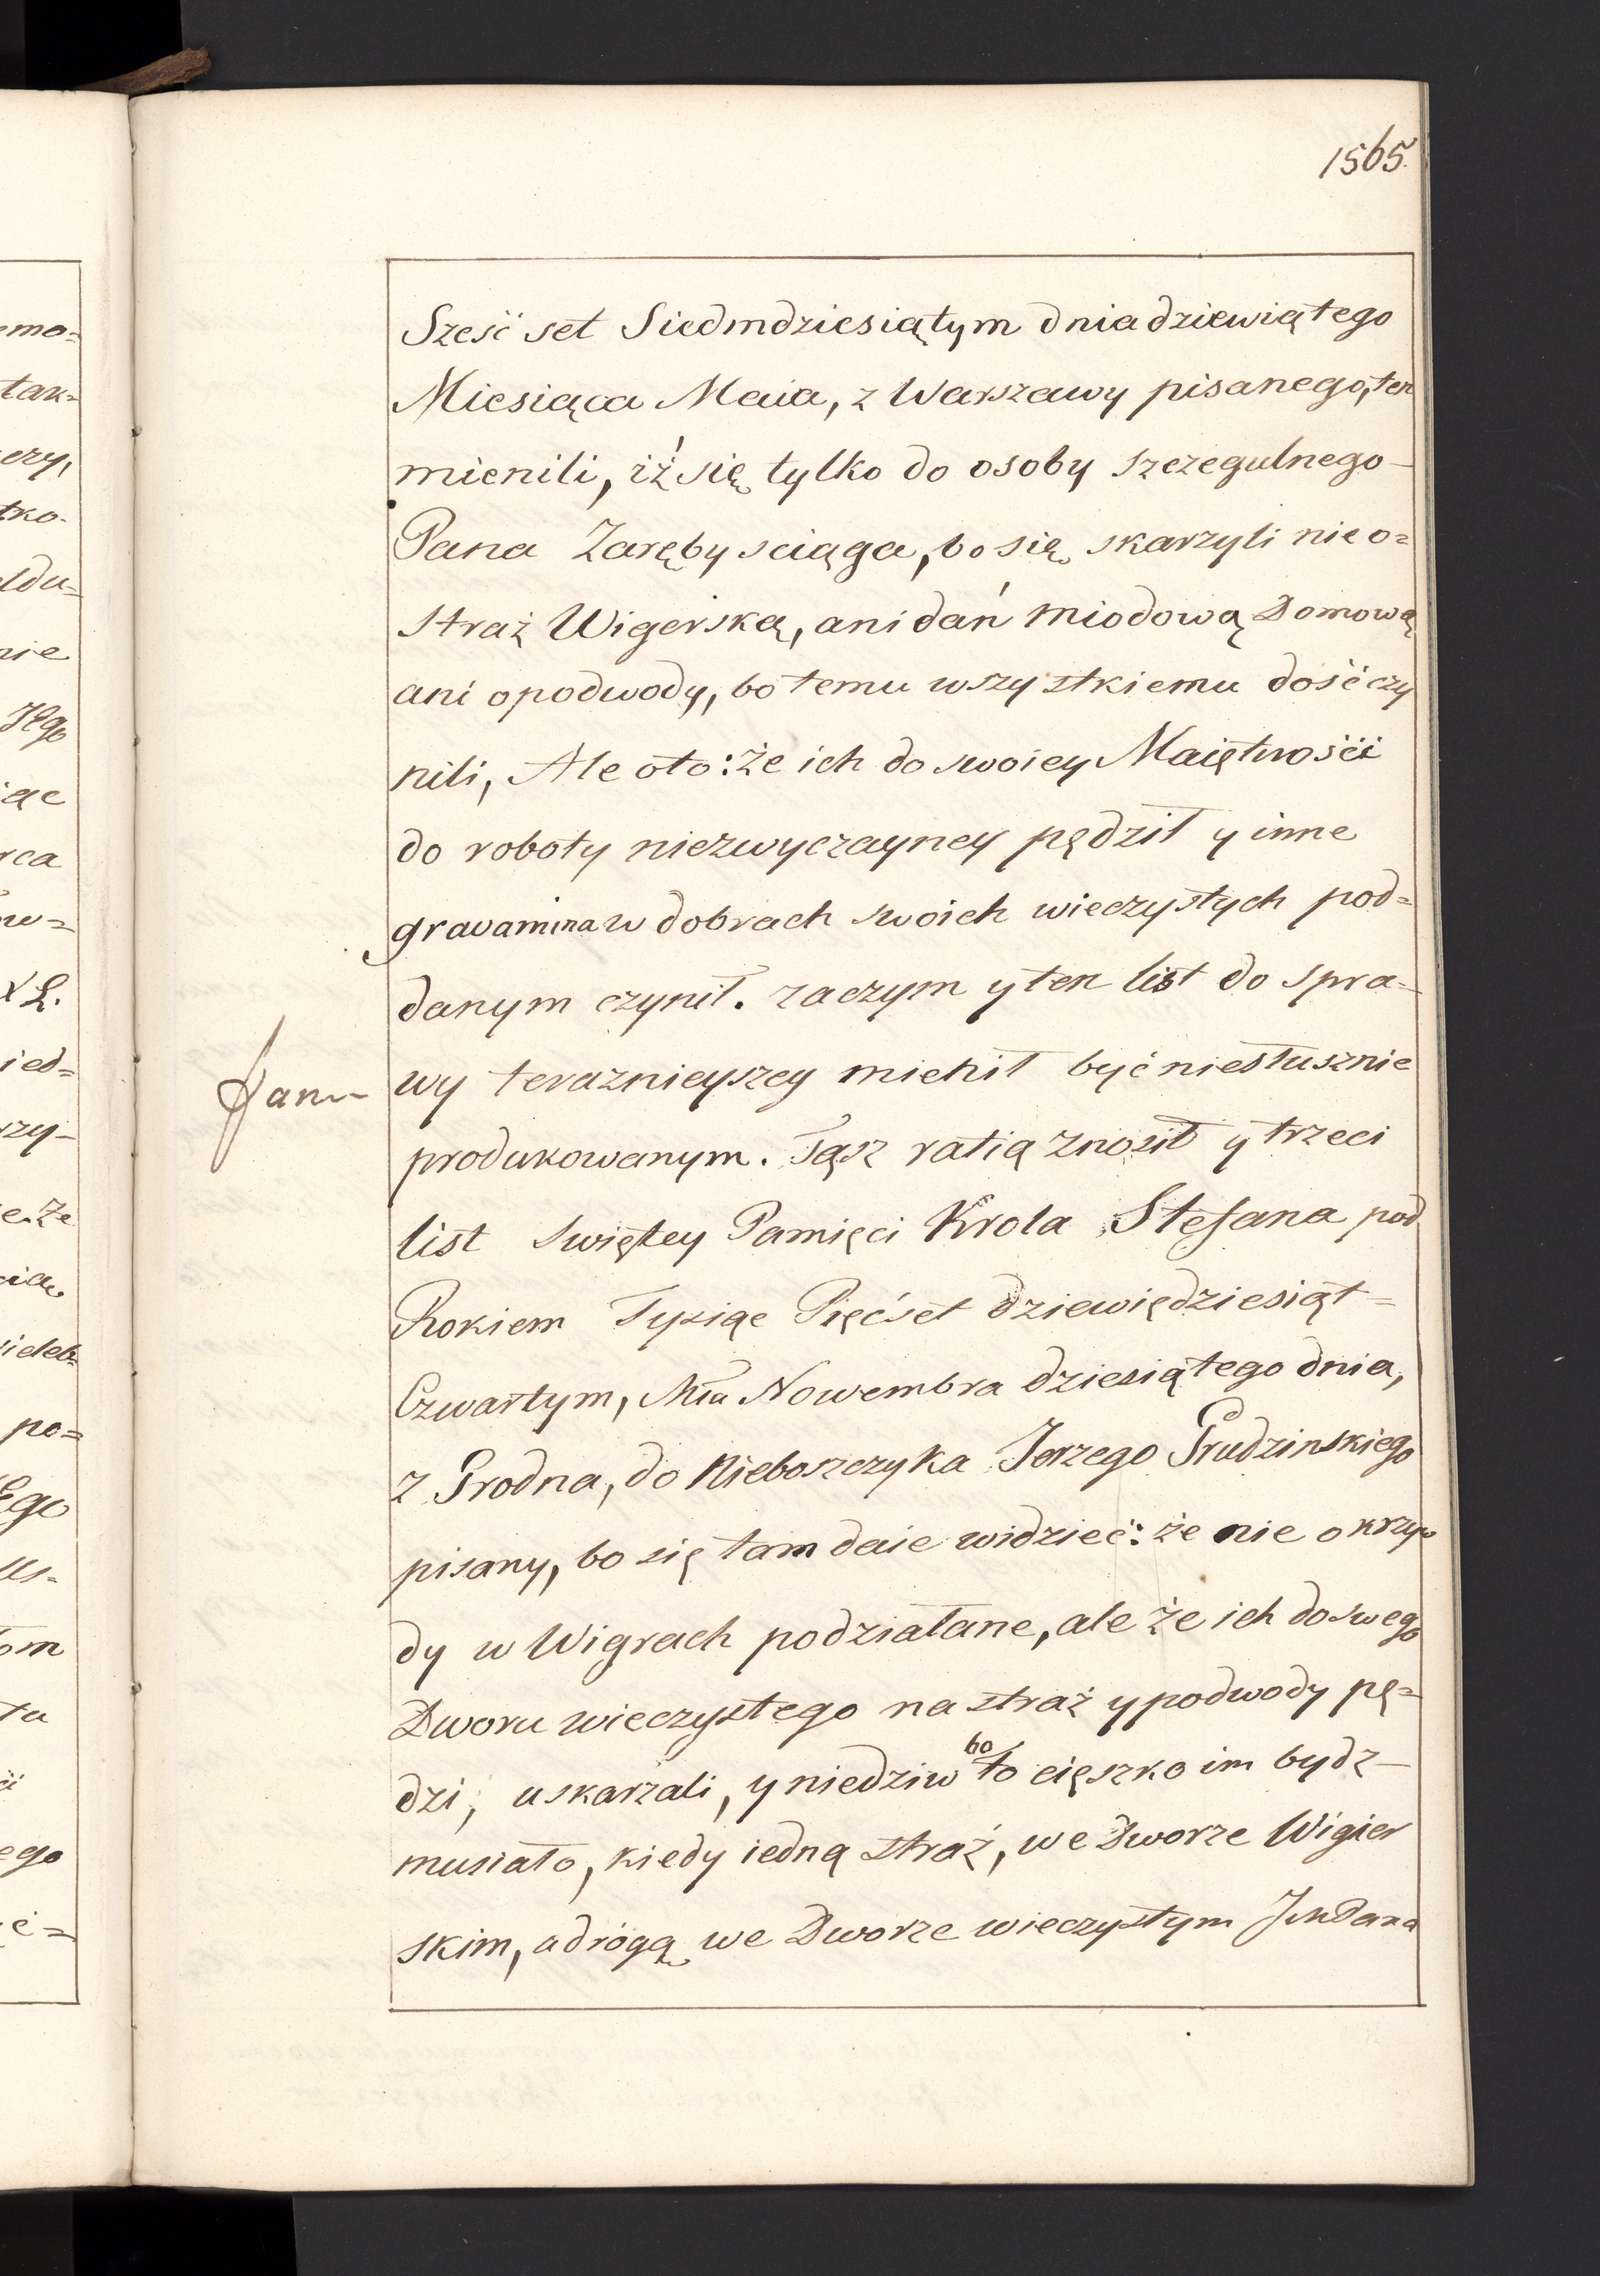 1565.
Sześć set Siedmdziesiątym dnia dziewiątego
Miesiąca Maia, z Warszawy pisanego, ten
mienili, iż się tylko do osoby szczegulnego
Pana Zaręby sciąga, bo się skarzyli nie o=
straż Wigerską, ani dań miodową Domową
ani o podwody, bo temu wszystkiemu dość czy
nili, Ale oto: że ich do swoiey Maiętności
do roboty niezwyczayney pędził y inne
gravamina w dobrach swoich wieczystych pod=
danym czynił. zaczym y ten list do spra=
wy teraznieyszey mienił być niesłusznie
produkowanym. Tąsz ratią znosił y trzeci
list Swiętey Pamięci Krola Stefana pod
Rokiem Tysiąc Pięćset dziewiędziesiąt=
Czwartym, Mca Nowembra dziesiątego dnia,
z Grodna, do Nieboszczyka Jerzego Grudzinskiego
pisany, bo się tam daie widzieć: że nie o krzyw
dy w Wigrach podziałane, ale że ich do swego
Dworu wieczystego na straż y podwody pę=
dzi, uskarzali, y niedziw bo to cięszko im bydz
musiało, kiedy iedną straż, we Dworze Wigier
skim, a drógą we Dworze wieczystym JmPana